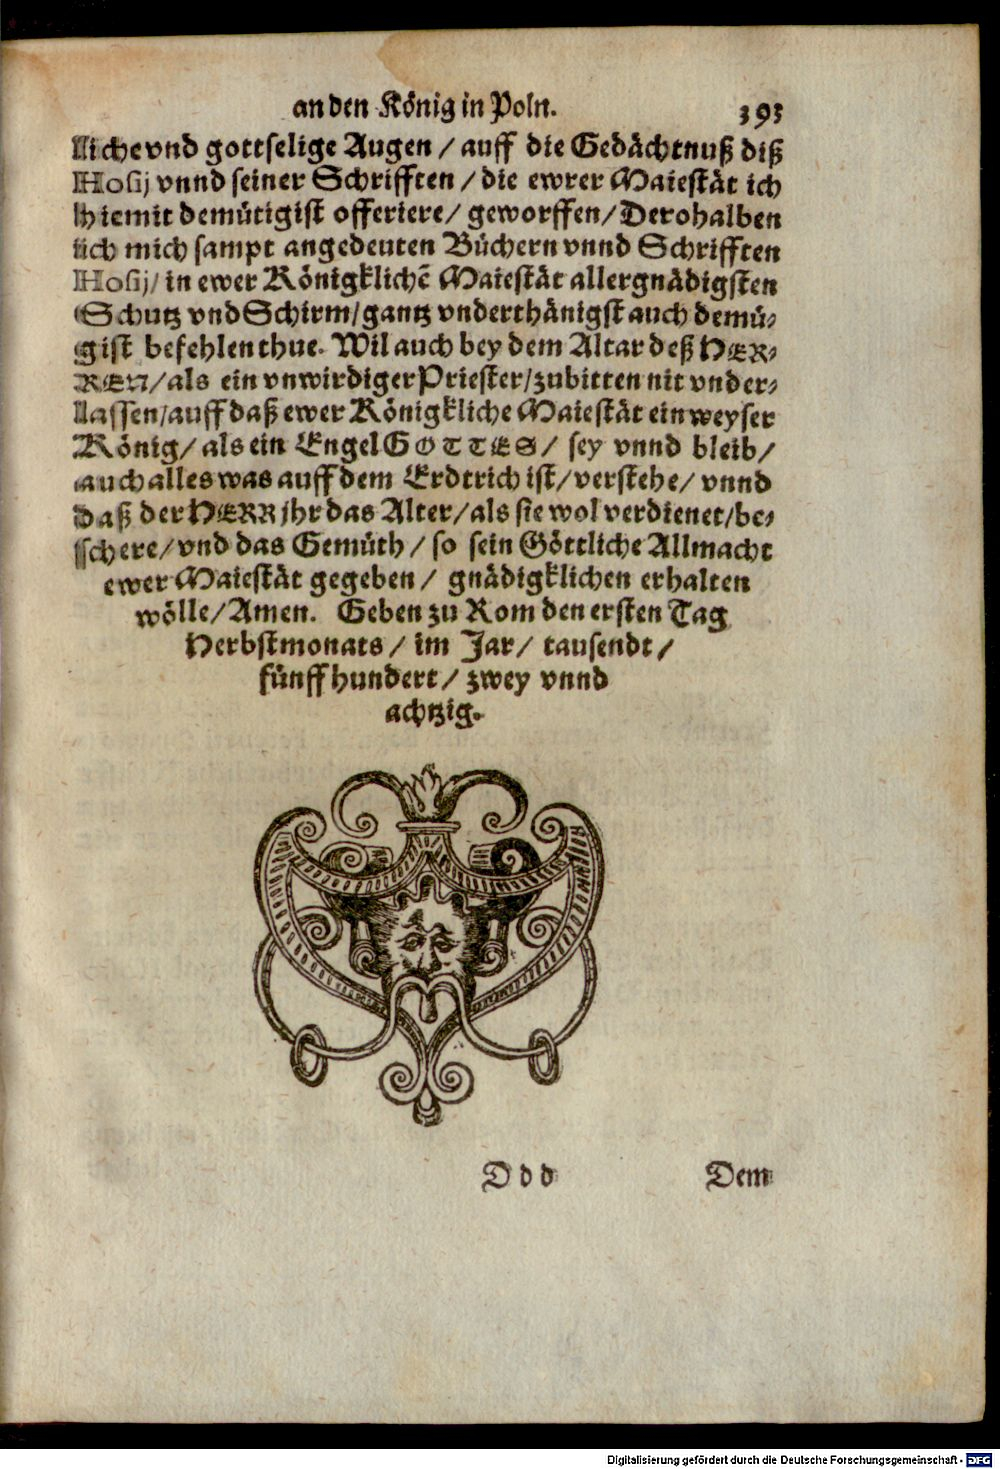 an den König in Poln. 393
liche vnd gottselige Augen / auff die Gedächtnuß diß
Hosij vnnd seiner Schrifften / die ewrer Maiestät ich
hiemit demütigist offeriere / geworffen / Derohalben
ich mich sampt angedeuten Büchern vnnd Schrifften
Hosij / in ewer Königkliche͂ Maiestät allergnädigsten
Schutz vnd Schirm / gantz vnderthänigst auch demü-
gist befehlen thue. Wil auch bey dem Altar deß HER-
REN / als ein vnwirdiger Priester / zubitten nit vnder-
lassen / auff daß ewer Königkliche Maiestät ein weyser
König / als ein Engel GOTTES / sey vnnd bleib /
auch alles was auff dem Erdtrich ist / verstehe / vnnd
daß der HERR jhr das Alter / als sie wol verdienet / be-
schere / vnd das Gemüth / so sein Göttliche Allmacht
ewer Maiestät gegeben / gnädigklichen erhalten
wölle / Amen. Geben zu Rom den ersten Tag
Herbstmonats / im Jar / tausendt /
fünff hundert / zwey vnnd
achtzig.
Ddd Dem
Digitalisierung gefördert durch die Deutsche Forschungsgemeinschaft - DFG